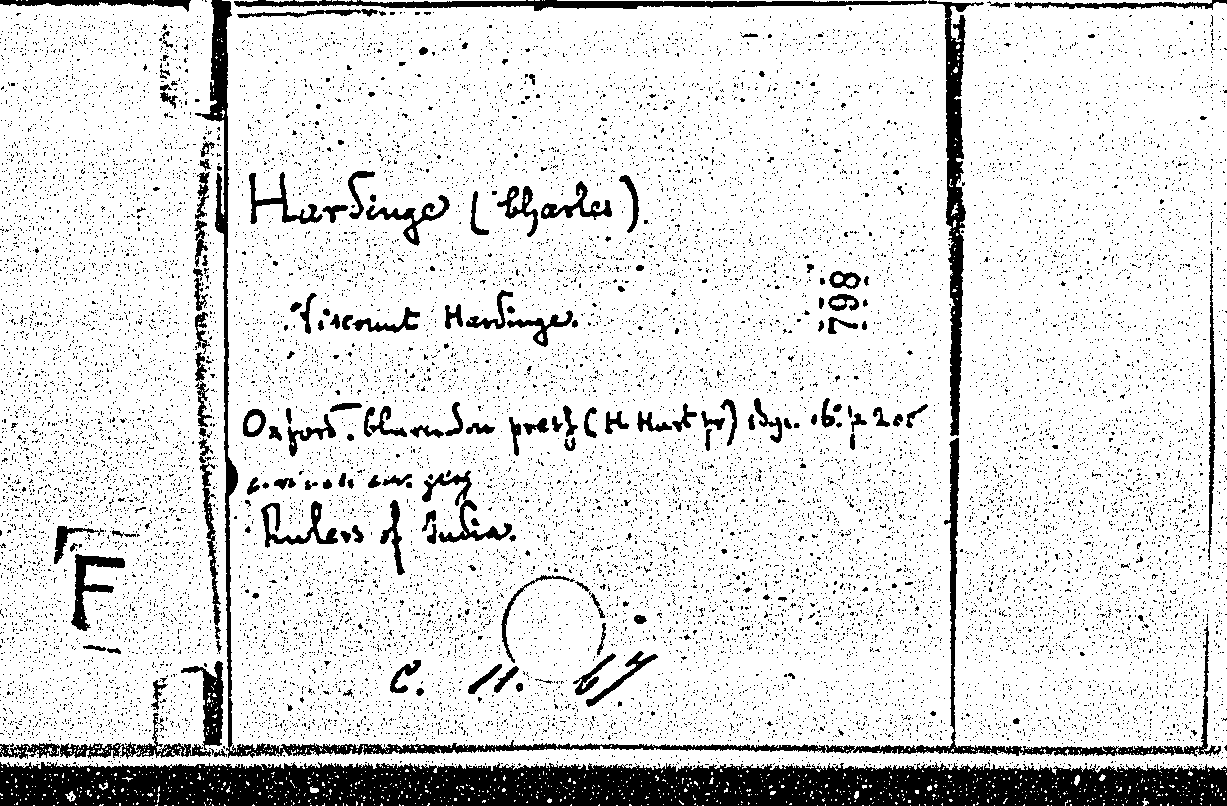 Hardinge (Charles).
Viscount Hardinge.
798
Oxford. Clarendon press (H Hart pr) 1891. 16° p 205
Rulers of India.
F
C. 11. 64